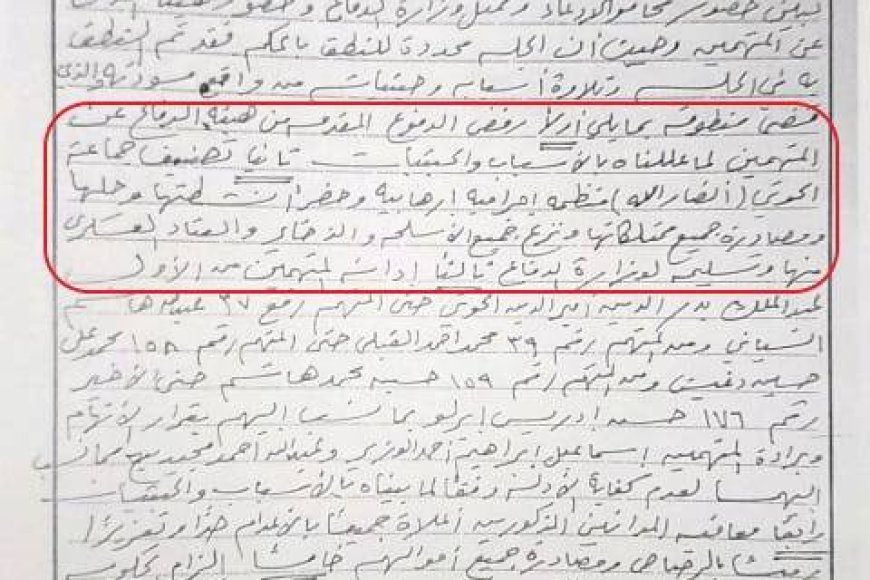 عن المتهمين وحيث أن الجلسه محددة للنطق بالحكم فقد تم النطق
به في الجلسه وتلاوة أسبابه وحيثيات من واقع مسودته والذي
قضى منطوقه بمايلي أولاً رفض الدفوع المقدمه من هيئه الدفاع عن
المتهمين لما عللناه بالأسباب والحيثيات ثانياً تصنيف جماعة
الحوثي (أنصار الله) منظمه إجراميه إرهابيه وحضر أنشطتها وحلها
ومصادرة جميع ممتلكاتها ونزع جميع الأسلحه والذخاير والعتاد العسكري
منها وتسليمه لوزارة الدفاع ثالثاً إدانة المتهمين من الأول
عبدالملك بدر الدين أمير الدين الحوثي حتى المتهم رقم ٣٧ عبدالله هاشم
السياني ومن المتهم رقم ٣٩ محمد احمد القبلي حتى المتهم رقم ١٥٨ محمد علي
حسين ومن المتهم رقم ١٥٩ حسين محمد هاشم حتى الأخير
رقم ١٧٦ حسن إدريس ايرلو بما نسب إليهم بقرار الأتهام
وبراءة المتهمين إسماعيل إبراهيم أحمد الوزير وعبدالله أحمد بما نسب
اليهما لعدم كفاية الأدلة وفقاً لما بيناه بالأسباب والحيثيات
رابعاً معاقبه المدانين المذكورين أعلاه جميعاً بالأعدام حداً وتعزيراً
بالرصاص ومصادرة جميع أموالهم خامساً إلزام